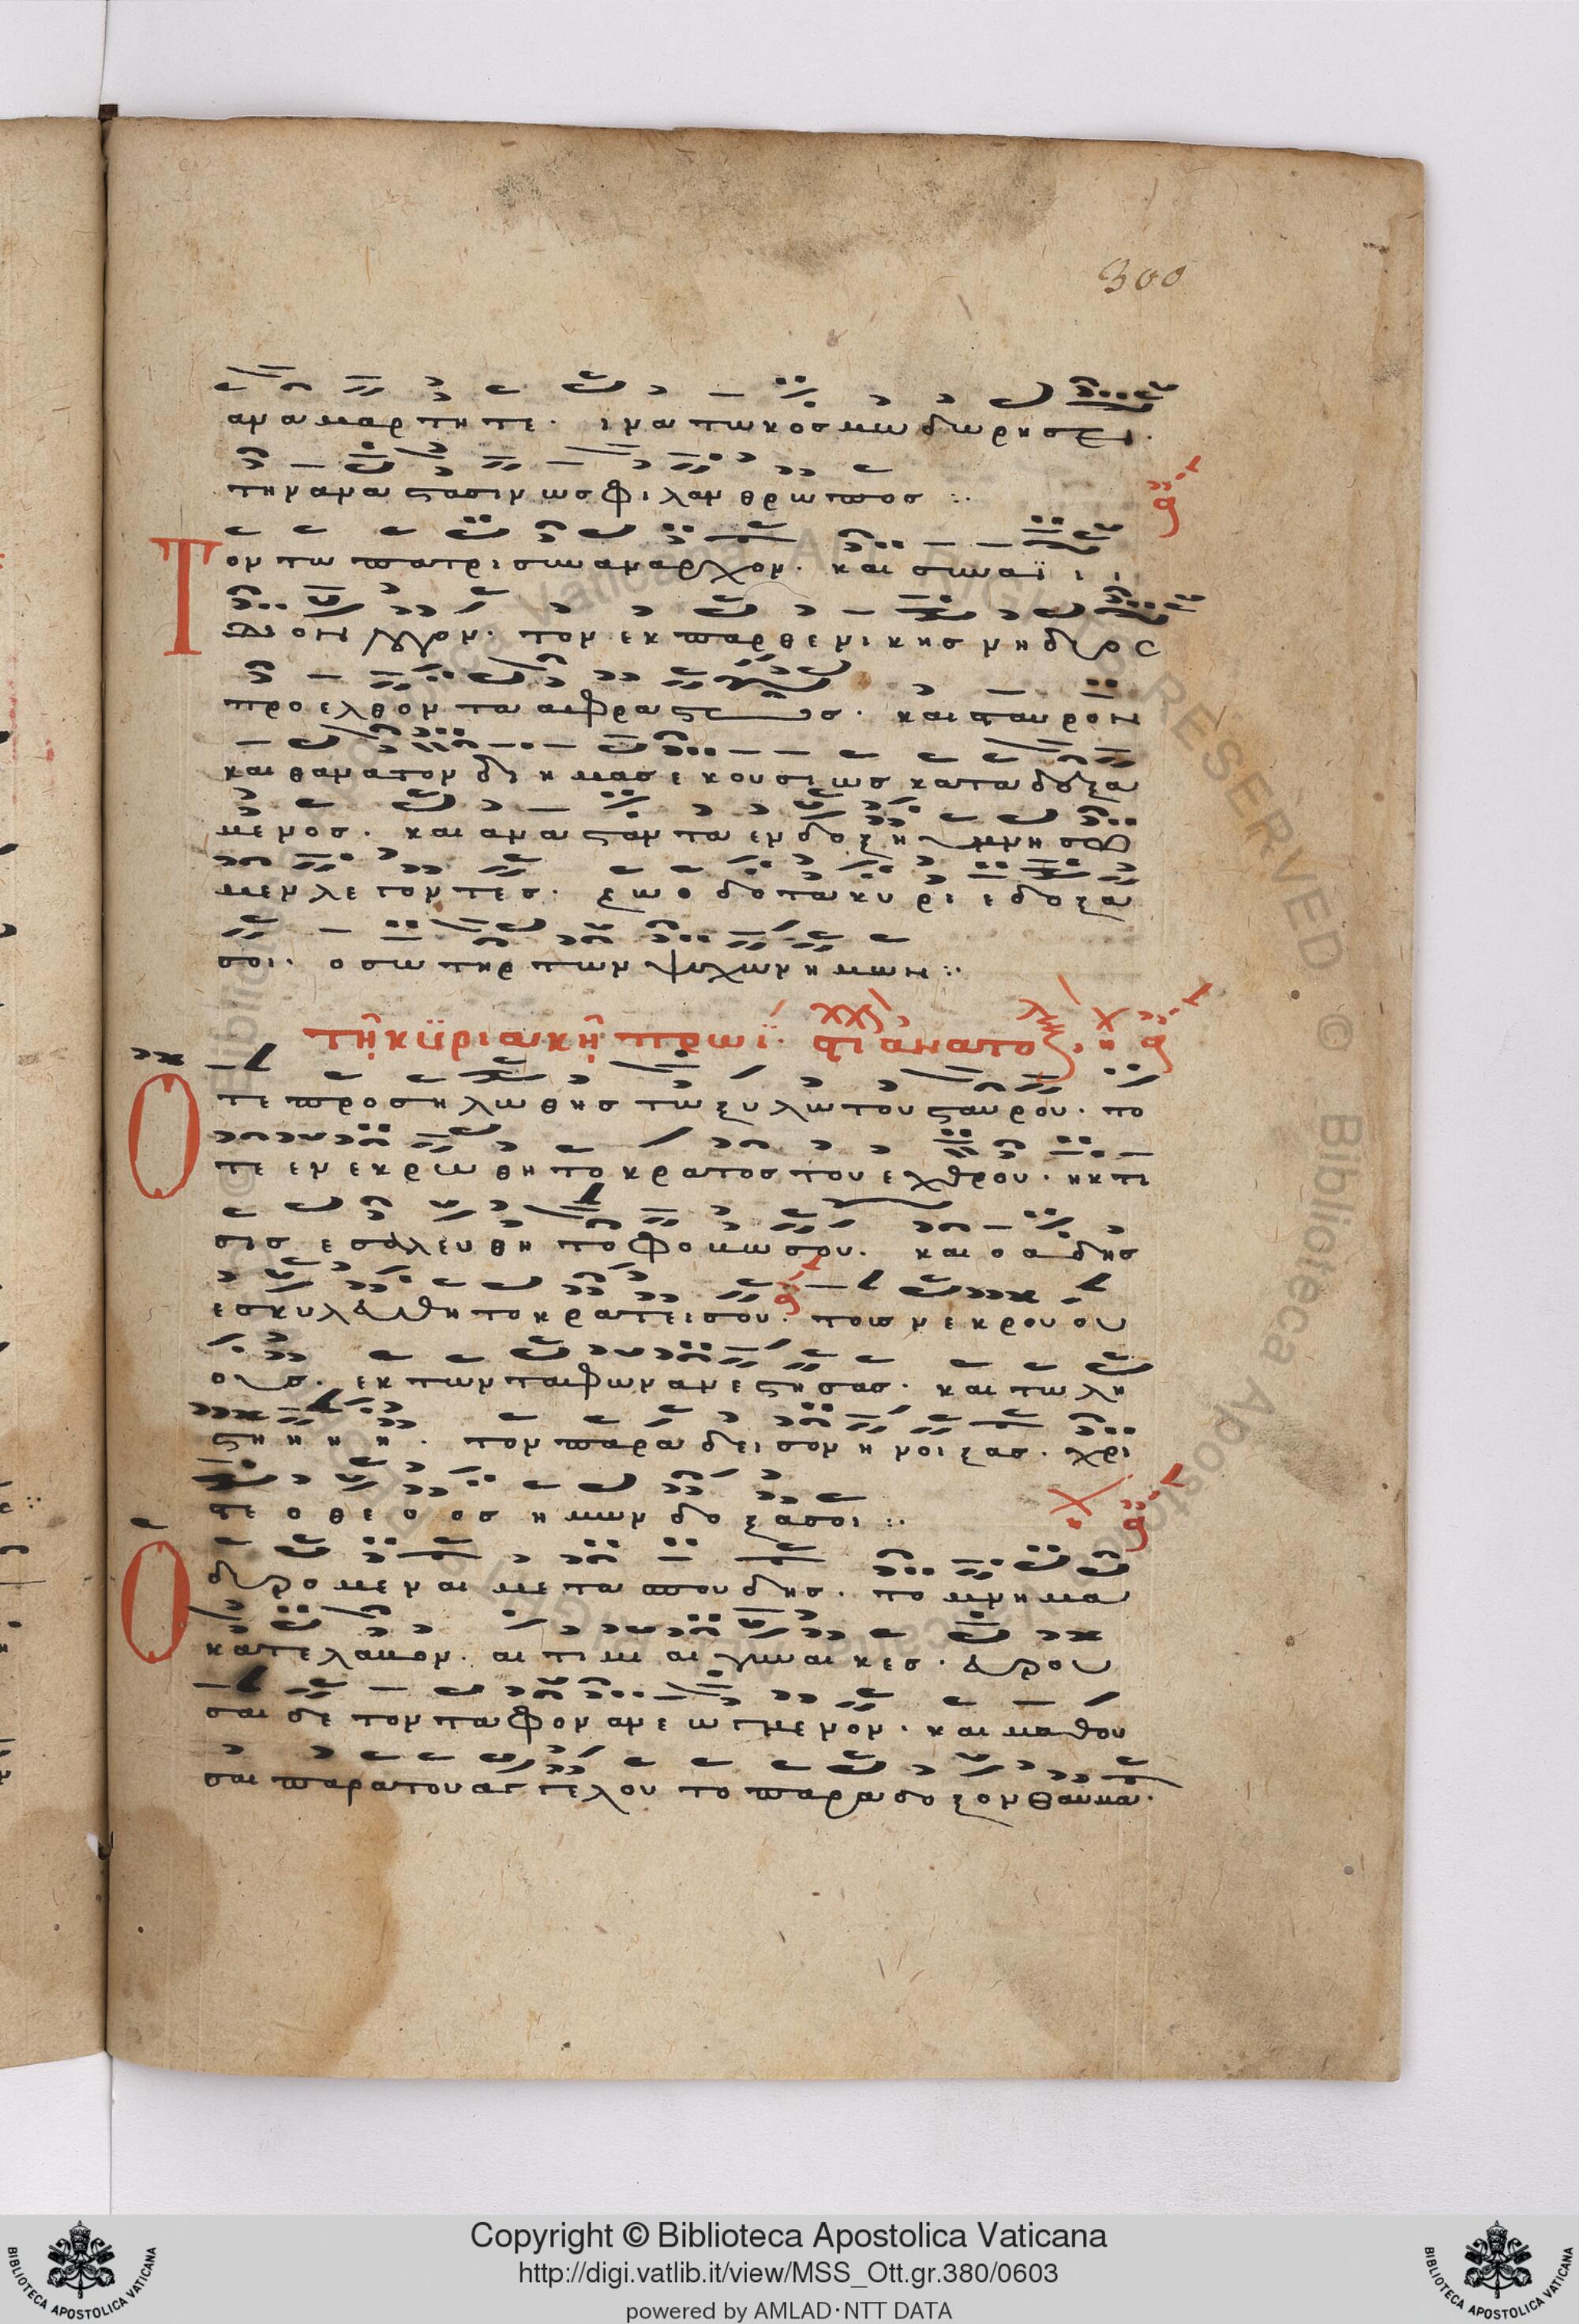 300
αναμαρτητε. ινα τω κοσμω δωρησει.
την αναστασιν ως φιλανθρωπος :.
Τον τω πατρι συναναρχον. και συναϊ ι ι
διον λογον. τον εκ παρθενικης νηδυος
προελθοντα αφραστως. και σταυρον
και θανατον δι ημας εκουσιως καταδεξα
μενος. και ανασταντα εν δοξη υμνησω
μεν λεγοντες. ζωοδοτα κυριε δοξα
σοι. ο σωτηρ των ψυχων ημων :.
τη κυριακη πρωϊ.
Οτε προσηλωθης τω ξυλω του σταυρου. το
τε ενεκρωθη το κρατος του εχθρου. η κτι
σις εσαλευθη τω φοβω σου. και ο αδης
εσκυλευθη τω κρατει σου. τους νεκρους ου
ους. εκ των ταφων ανεστησας. και τω λη
στη η η η. τον παραδεισον ηνοιξας. χρι
στε ο θεο ος ημων δοξα σοι :.
Οδυρομεναι μετα σπουδης. το μνημα
κατελαβον. αι τιμιαι γυναικες. ευρου
σαι δε τον ταφον ανεωγμενον. και μαθου
σαι παρα του αγγελου το παραδοξον θαυμα.
Copyright © Biblioteca Apostolica Vaticana
http://digi.vatlib.it/view/MSS_Ott.gr.380/0603
powered by AMLAD·NTT DATA
BIBLIOTECA APOSTOLICA VATICANA
BIBLIOTECA APOSTOLICA VATICANA